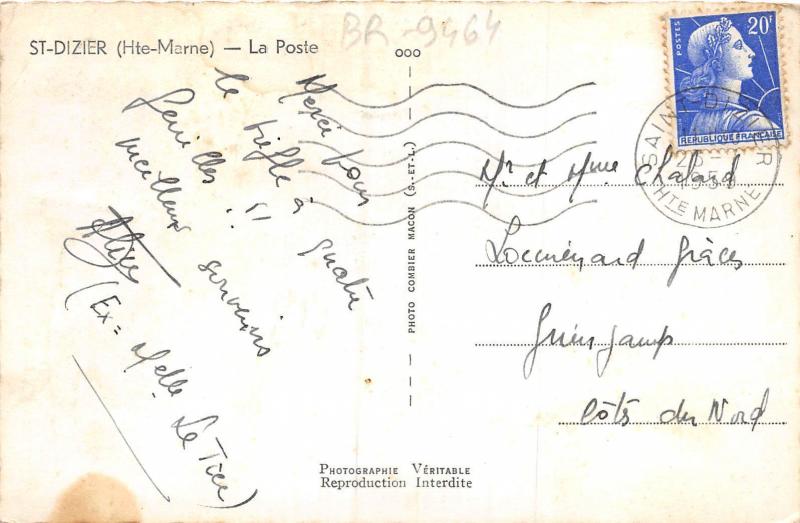 ST-DIZIER (Hte-Marne) — La Poste
BR-9464
ooo
POSTES
20F
REPUBLIQUE FRANÇAISE
SAINT-DIZIER
HTE MARNE
Merci pour
le trèfle à quatre
feuilles !!
meilleurs souvenirs
(Ex = Melle Le Tiec)
PHOTO COMBIER MACON (S.-ET-L.)
Mr et Mme Chalard
Locménard Grâces
Guingamp
Côts du Nord
PHOTOGRAPHIE VÉRITABLE
Reproduction Interdite